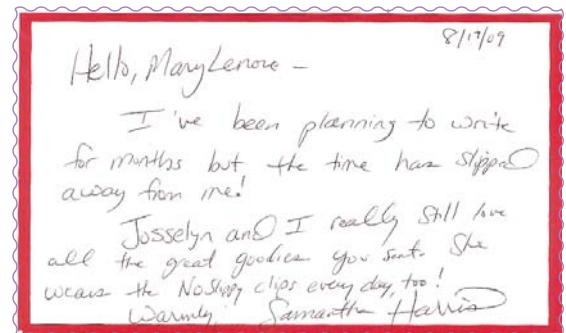 8/17/09
Hello, MaryLenore –
I've been planning to write
for months but the time has slipped
away from me!
Josselyn and I really still love
all the great goodies you sent. She
wears the NoSlippy clips every day, too!
Warmly, Samantha Harris